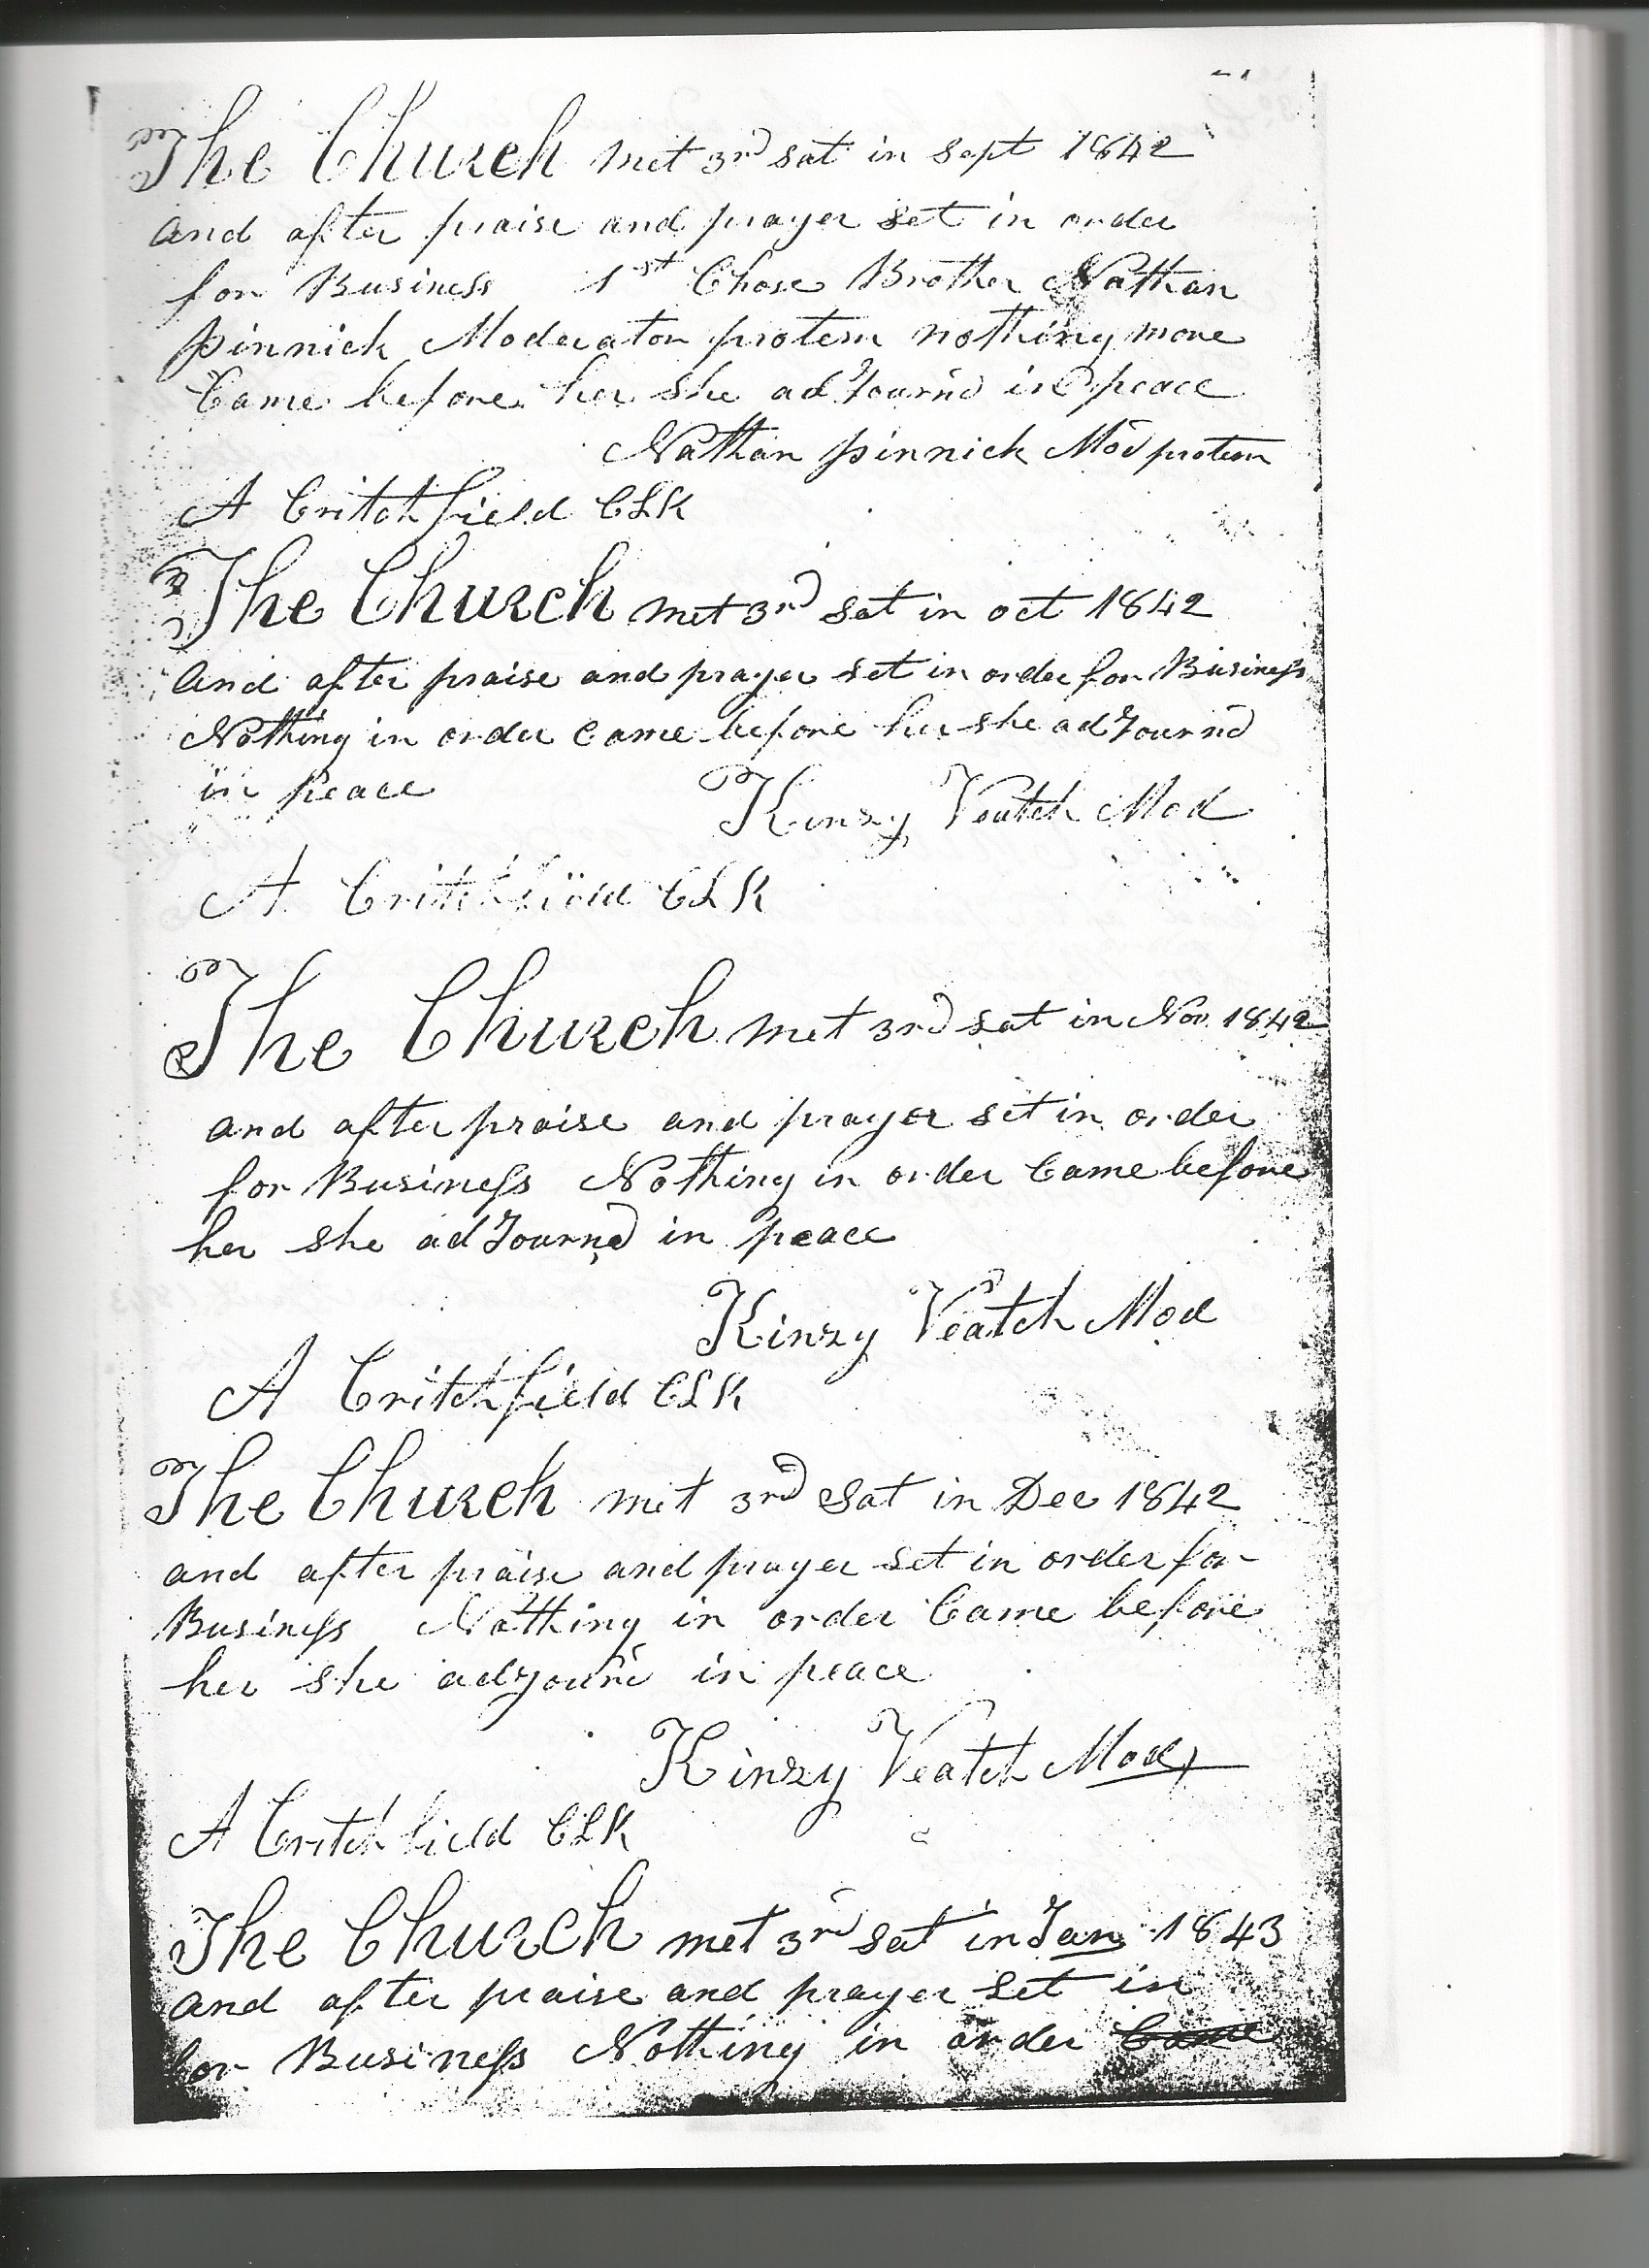 The Church met 3rd sat in sept 1842
and after praise and prayer set in order
for Business 1st Chose Brother Nathan
pinnick Moderator protem nothing more
Came before her she adJournd in peace
Nathan pinnick Mod protem
A Critchfield CLK
The Church met 3rd sat in oct 1842
and after praise and prayer set in order for Business
Nothing in order came before her she adJournd
in peace Kinzy Veatch Mod
A Critchfield CLK
The Church met 3rd sat in Nov 1842
and after praise and prayer set in order
for Business Nothing in order Came before
her she adJournd in peace
Kinzy Veatch Mod
A Critchfield CLK
The Church met 3rd sat in Dec 1842
and after praise and prayer set in order for
Business Nothing in order Came before
her she adjournd in peace
Kinzy Veatch Mod
A Critchfield CLK
The Church met 3rd sat in Jan 1843
and after praise and prayer set in
for Business Nothing in order Came